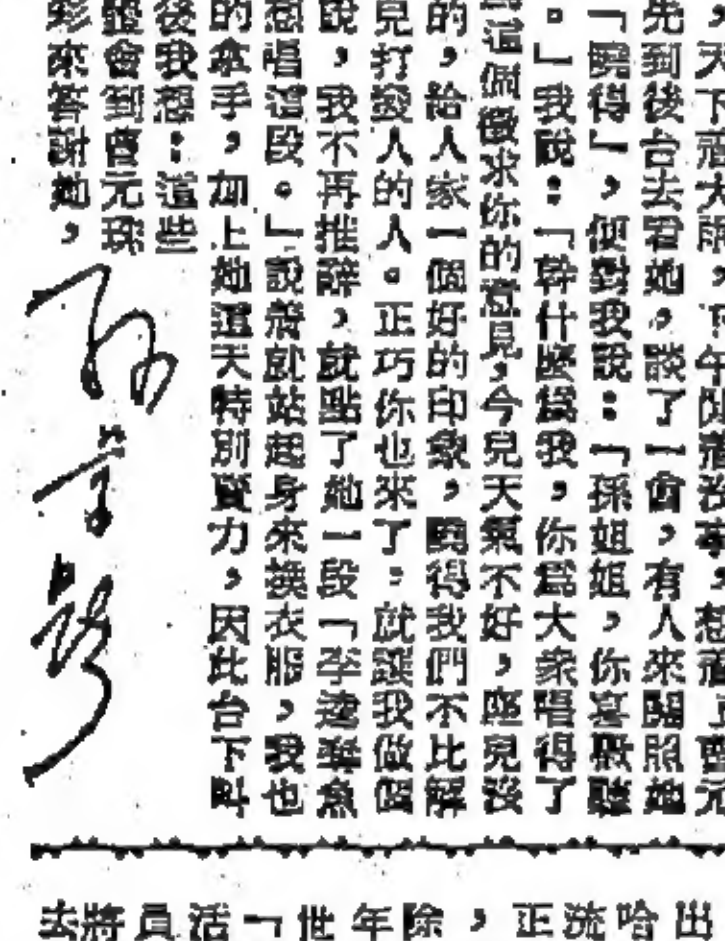 ，天下着大雨，下午
先到後台去看她，談了一會，有人來關照她
「曉得」，便對我說：「孫姐姐，你喜歡聽
。」我說：「幹什麼爲我，你爲大家唱得了
這個徵求你的意見，今兒天氣不好，座兒沒
的，給人家一個好的印象，曉得我們不比解
見打發人的人。正巧你也來了，就讓我做個
說，我不再推辭，就點了她一段「李逵
想唱這段。」說着就站起身來換衣服，我也
的拿手，加上她這天特別賣力，因此台下叫
後我想：這些
會到曾元
彩來答謝她，
去將員活「世年除，正流哈出